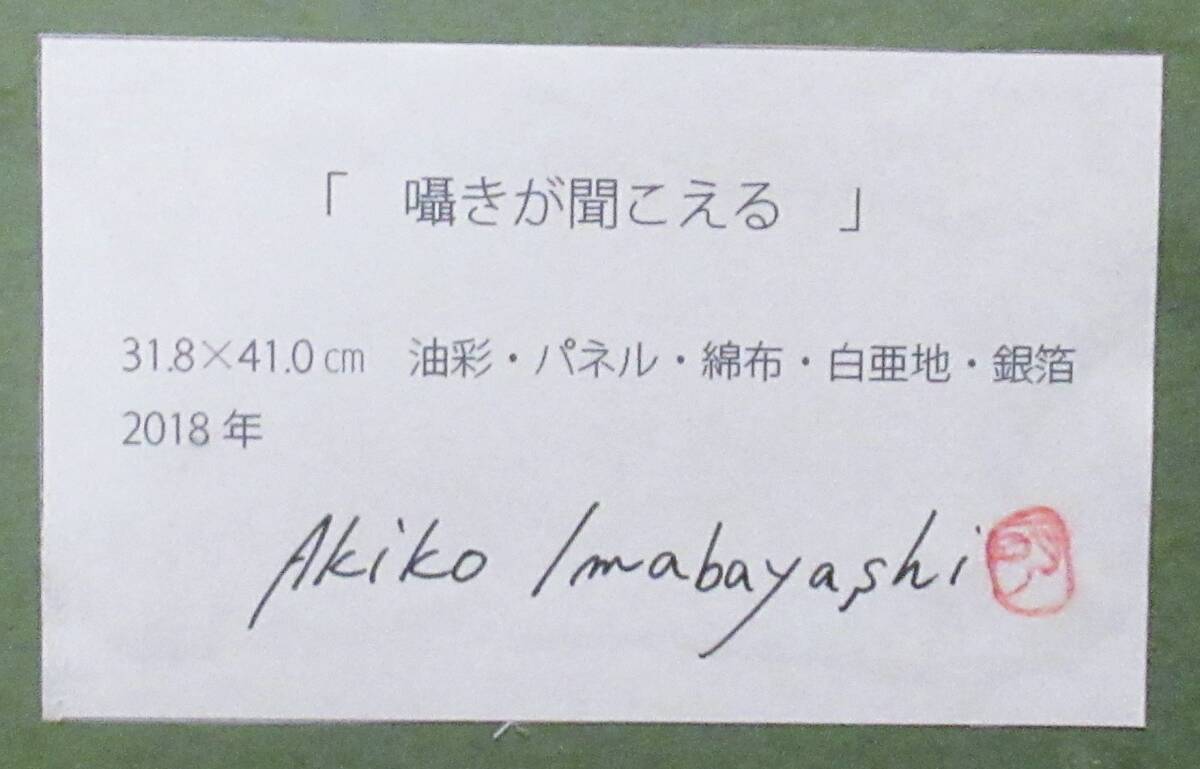 「　囁きが聞こえる　」
31.8×41.0㎝　油彩・パネル・綿布・白亜地・銀箔
2018 年
Akiko Imabayashi